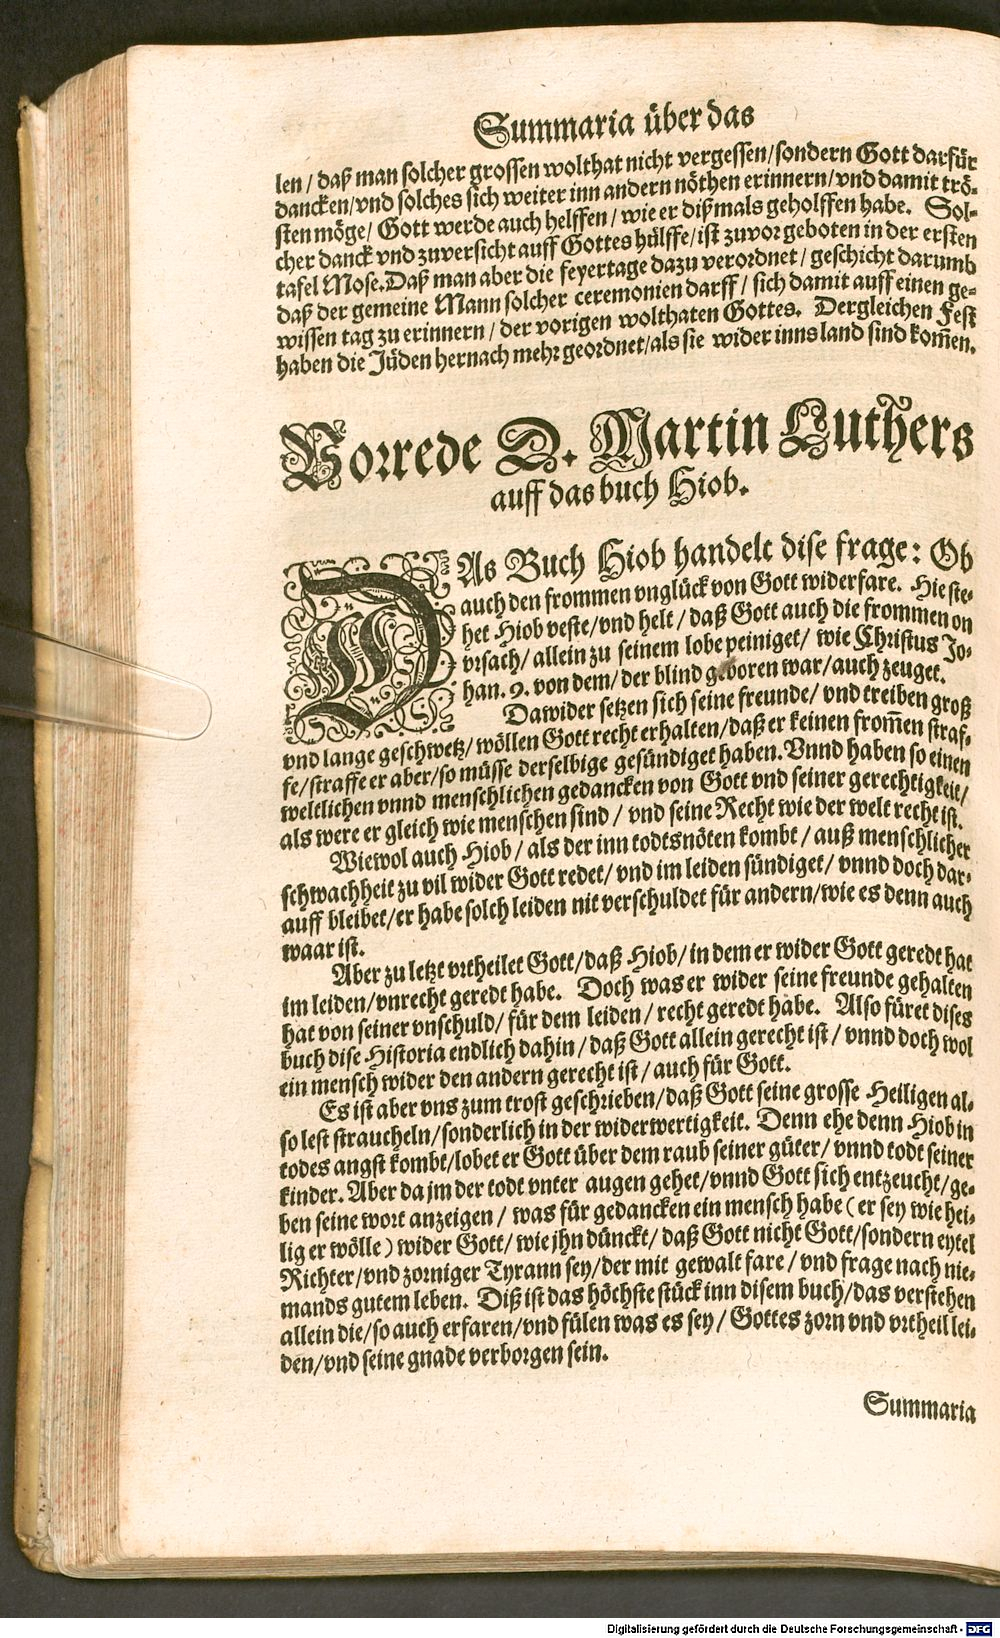 Summaria über das
len / daß man solcher grossen wolthat nicht vergessen / sondern Gott darfür
dancken / vnd solches sich weiter inn andern nöthen erinnern / vnd damit trö-
sten möge / Gott werde auch helffen / wie er dißmals geholffen habe. Sol-
cher danck vnd zuversicht auff Gottes hülffe / ist zuvor geboten in der ersten
tafel Mose. Daß man aber die feyertage dazu verordnet / geschicht darumb
daß der gemeine Mann solcher ceremonien darff / sich damit auff einen ge-
wissen tag zu erinnern / der vorigen wolthaten Gottes. Dergleichen Fest
haben die Jüden hernach mehr geordnet / als sie wider inns land sind kom̃en.
Vorrede D. Martin Luthers
auff das buch Hiob.
DAs Buch Hiob handelt dise frage: Ob
auch den frommen vnglück von Gott widerfare. Hie ste-
het Hiob veste / vnd helt / daß Gott auch die frommen on
vrsach / allein zu seinem lobe peiniget / wie Christus Jo-
han. 9. von dem / der blind geboren war / auch zeuget.
Dawider setzen sich seine freunde / vnd treiben groß
vnd lange geschwetz / wöllen Gott recht erhalten / daß er keinen from̃en straf-
fe / straffe er aber / so müsse derselbige gesündiget haben. Vnnd haben so einen
weltlichen vnnd menschlichen gedancken von Gott vnd seiner gerechtigkeit /
als were er gleich wie menschen sind / vnd seine Recht wie der welt recht ist.
Wiewol auch Hiob / als der inn todtsnöten kombt / auß menschlicher
schwachheit zu vil wider Gott redet / vnd im leiden sündiget / vnnd doch dar-
auff bleibet / er habe solch leiden nit verschuldet für andern / wie es denn auch
waar ist.
Aber zu letzt vrtheilet Gott / daß Hiob / in dem er wider Gott geredt hat
im leiden / vnrecht geredt habe. Doch was er wider seine freunde gehalten
hat von seiner vnschuld / für dem leiden / recht geredt habe. Also füret dises
buch dise Historia endlich dahin / daß Gott allein gerecht ist / vnnd doch wol
ein mensch wider den andern gerecht ist / auch für Gott.
Es ist aber vns zum trost geschrieben / daß Gott seine grosse Heiligen al-
so lest straucheln / sonderlich in der widerwertigkeit. Denn ehe denn Hiob in
todes angst kombt / lobet er Gott über dem raub seiner güter / vnnd todt seiner
kinder. Aber da jm der todt vnter augen gehet / vnnd Gott sich entzeucht / ge-
ben seine wort anzeigen / was für gedancken ein mensch habe ( er sey wie hei-
lig er wölle ) wider Gott / wie jhn dünckt / daß Gott nicht Gott / sondern eytel
Richter / vnd zorniger Tyrann sey / der mit gewalt fare / vnd frage nach nie-
mands gutem leben. Diß ist das höchste stück inn disem buch / das verstehen
allein die / so auch erfaren / vnd fülen was es sey / Gottes zorn vnd vrtheil lei-
den / vnd seine gnade verborgen sein.
Summaria
Digitalisierung gefördert durch die Deutsche Forschungsgemeinschaft - DFG